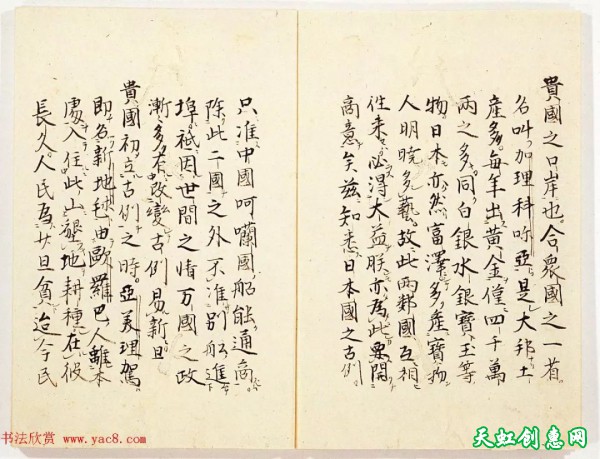 貴國之口岸也合衆國之一省
名叫加理科吶亞是大邦土
產多每年出黃金僅四千萬
兩之多同白銀水銀寶玉等
物日本亦然富澤多產寶物
人明曉多藝故此兩鄰國互相
往来必得大益朕亦為此要開
商意矣茲知悉日本國之古例
只准中國呵囒國船能通商
除此二國之外不准別船進
埠祗因世間之情万國之政
漸多有改變古例易新旦
貴國初立古例之時亞美理駕
即名新地毬由歐羅巴人離本
處入住此山賴地耕種在彼
長久人民為廿旦貧迨今民
书法欣赏 www.yac8.com
天虹创意网